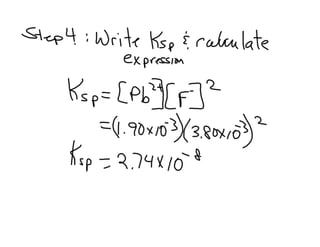 Step 4: Write Ksp & calculate
expression
Ksp = [Pb²⁺][F⁻]²
= (1.90x10⁻³)(3.80x10⁻³)²
Ksp = 2.74x10⁻⁸